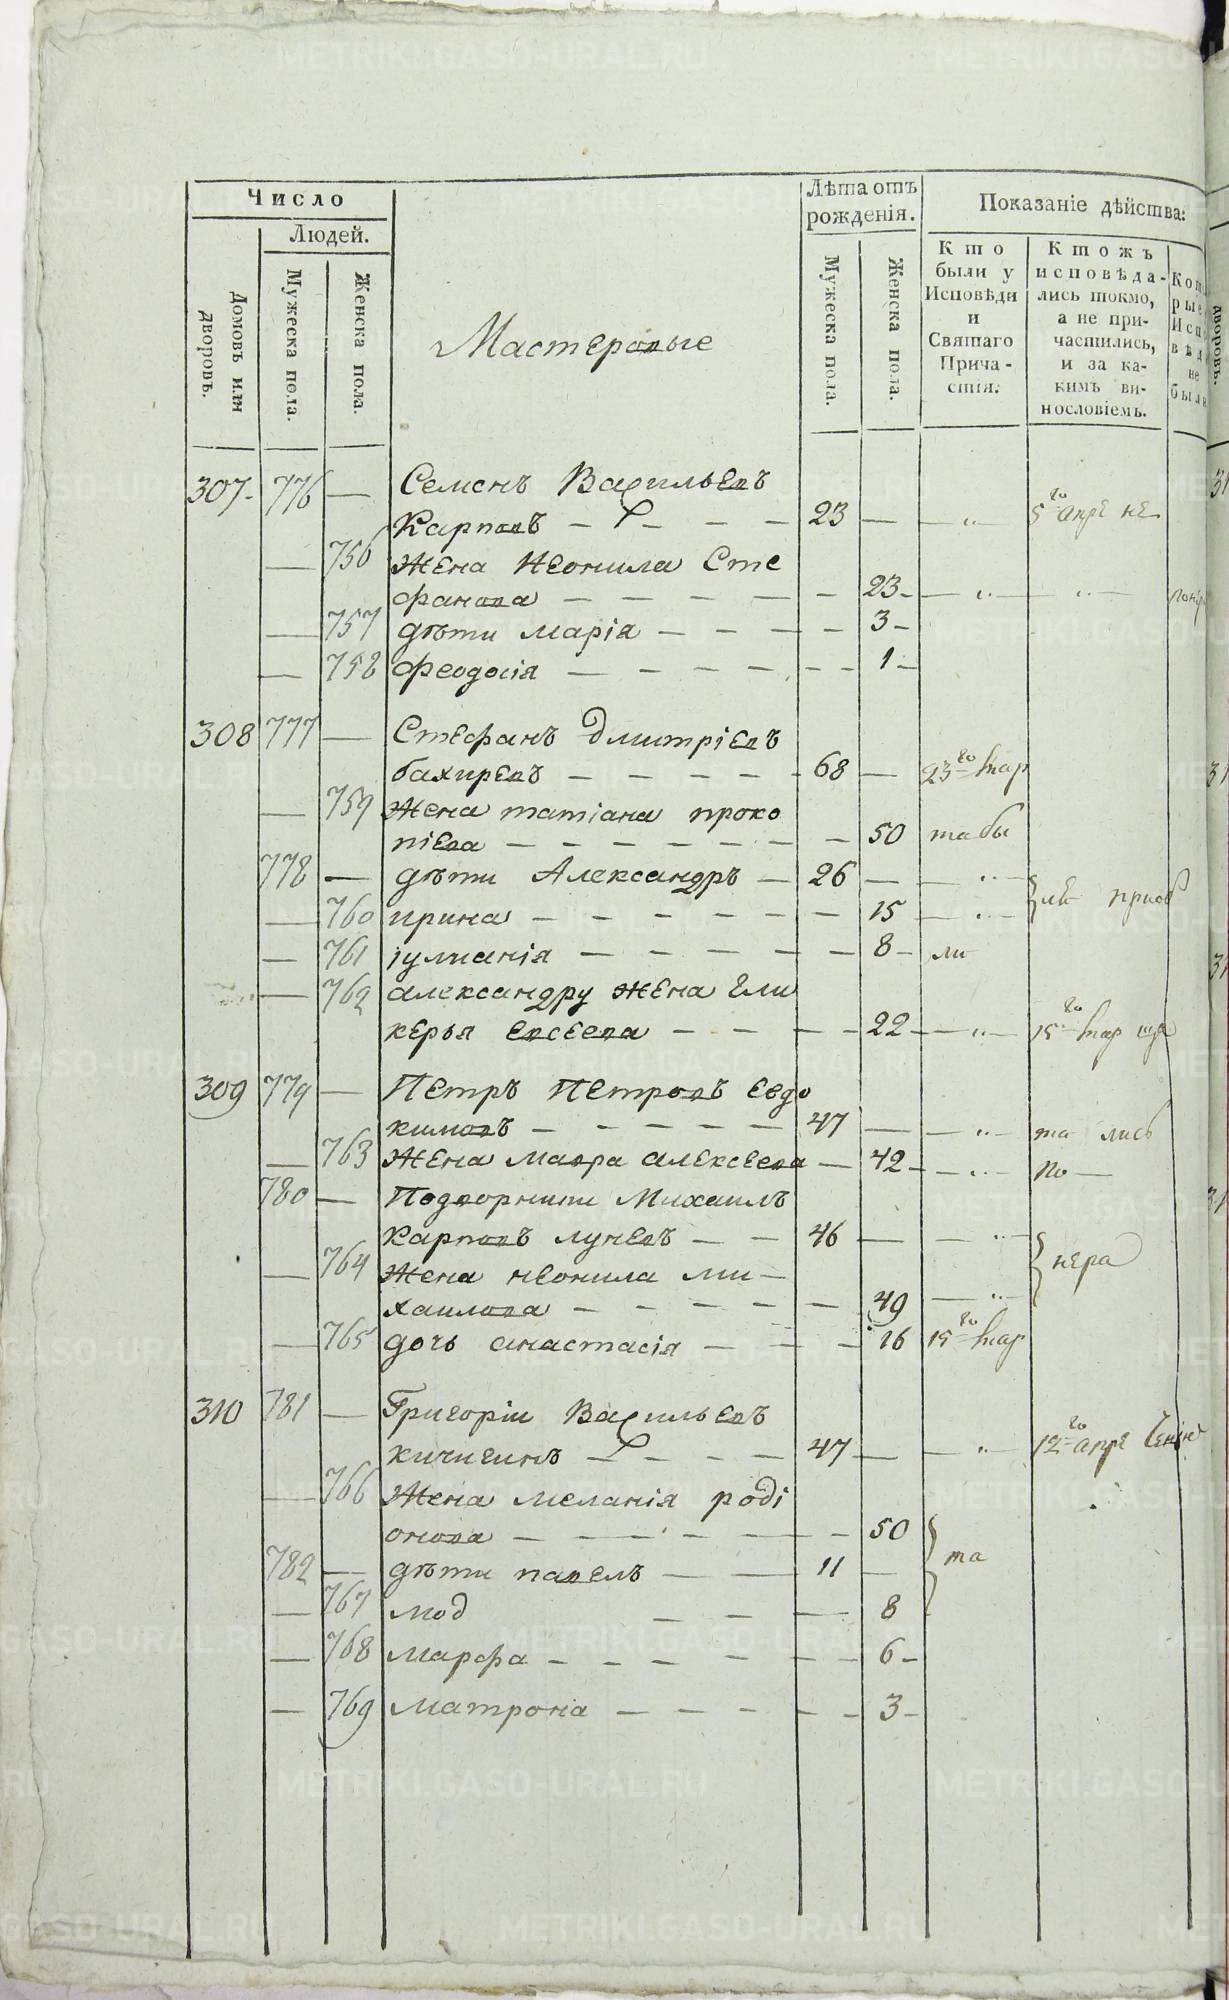 Число
Людей.
Домовъ или дворовъ.
Мужеска пола.
Женска пола.
Мастеровые
Лѣта отъ рожденія.
Мужеска пола.
Женска пола.
Показаніе дѣйства:
Кто были у Исповѣди и Святаго Причастія.
Ктожъ исповѣдались токмо, а не причастились, и за какимъ винословіемъ.
307 776 — Семенъ Васильевъ
Карповъ — — — — 23 — — „ 5го апре не
— 756 Жена Неонила Сте
фанова — — — — — 23 — — „ — „
— 757 дѣти марія — — — — 3 —
— 758 феодосія — — — — — 1 —
308 777 — Стефанъ Дмитріевъ
бахиревъ — — — — 68 — 23го мар
— 759 Жена татіана проко
піева — — — — — — 50 та бы
778 — дѣти Александръ — 26 — — „
— 760 ирина — — — — — — 15 — „
— 761 іулианія — — — — — 8 — ли
— 762 александру жена гли
керья евсеева — — — — 22 — „ 15го мар
309 779 — Петръ Петровъ евдо
кимовъ — — — — — 47 — — „ та лись
— 763 Жена мавра алексеева — 42 — „ по —
780 — Подворники Михаилъ
Карповъ луневъ — — 46 — — „
— 764 Жена неонила ми
хаилова — — — — — 49 — „
— 765 дочь анастасія — — — 16 15го мар
310 781 — Григорій Васильевъ
кичигинъ — — — — 47 — — „ 12го апре
— 766 Жена меланія роді
онова — — — — — 50
782 — дѣти павелъ — — 11 — та
— 767 мод — — — 8
— 768 марфа — — — — — — 6 —
— 769 матрона — — — — — 3 —
METRIKI.GASO-URAL.RU